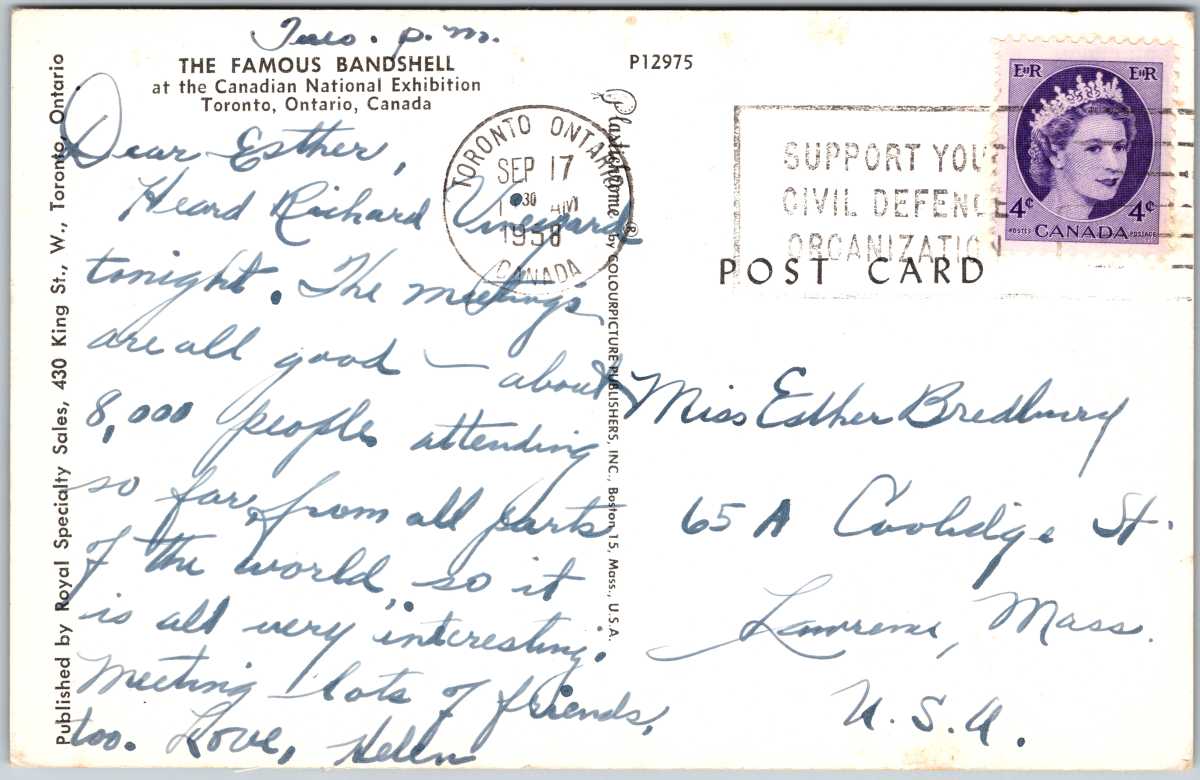 Tues. p.m.
THE FAMOUS BANDSHELL
at the Canadian National Exhibition
Toronto, Ontario, Canada
P12975
Dear Esther,
Heard Richard Vineyard
tonight. The meetings
are all good — about
8,000 people attending
so far, from all parts
of the world, so it
is all very interesting.
Meeting lots of friends,
too. Love, Helen
Published by Royal Specialty Sales, 430 King St., W., Toronto, Ontario
TORONTO ONTARIO
SEP 17
30 AM
1958
CANADA
Plastichrome ® by COLOURPICTURE PUBLISHERS, INC., Boston 15, Mass., U.S.A.
SUPPORT YOU
CIVIL DEFENCE
ORGANIZATION
EIIR EIIR
4¢ 4¢
POSTES CANADA POSTAGE
POST CARD
Miss Esther Bredbury
65 A Coolidge St.
Lawrence, Mass.
U.S.A.